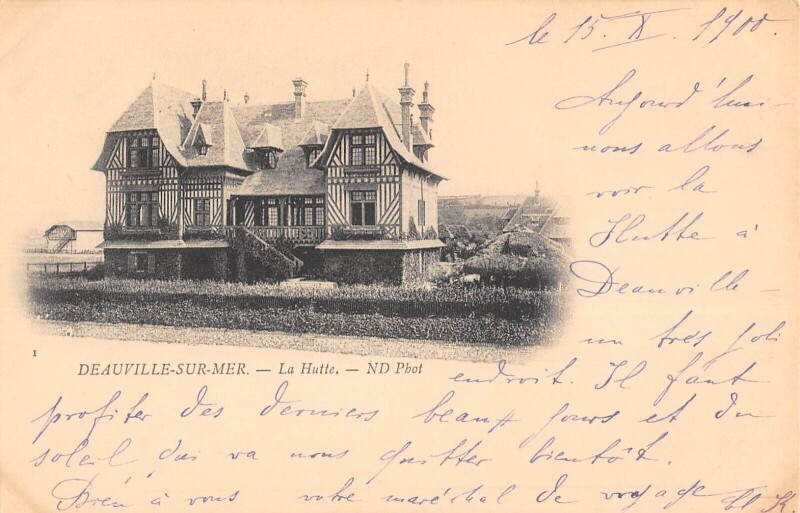 le 15. X. 1900.
Aujourd'hui
nous allons
voir la
Hutte à
Deauville -
un très joli
endroit. Il faut
profiter des derniers beaux jours et du
soleil qui va nous quitter bientôt.
Bien à vous votre maréchal de voyage H. K.
1
DEAUVILLE-SUR-MER. — La Hutte. — ND Phot